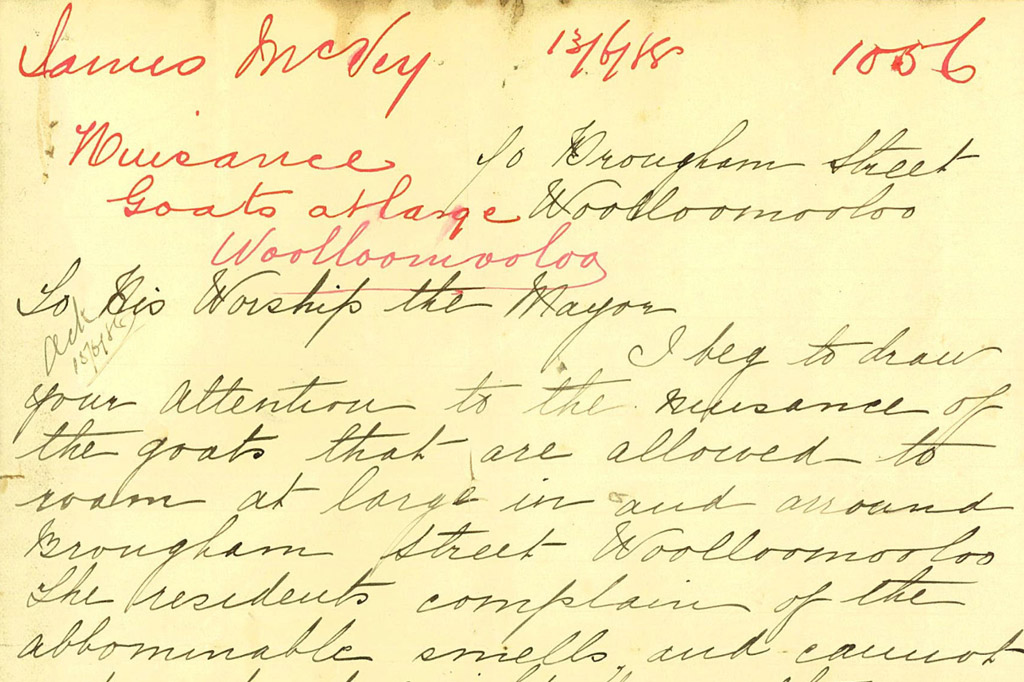 James McVey 13/6/88 1056
Nuisance
Goats at large
Woolloomooloo
70 Brougham Street
Woolloomooloo
To His Worship the Mayor
Ack
15/6/88
I beg to draw
your attention to the nuisance of
the goats that are allowed to
roam at large in and arround
Brougham Street Woolloomooloo
The residents complain of the
abbominable smells, and cannot